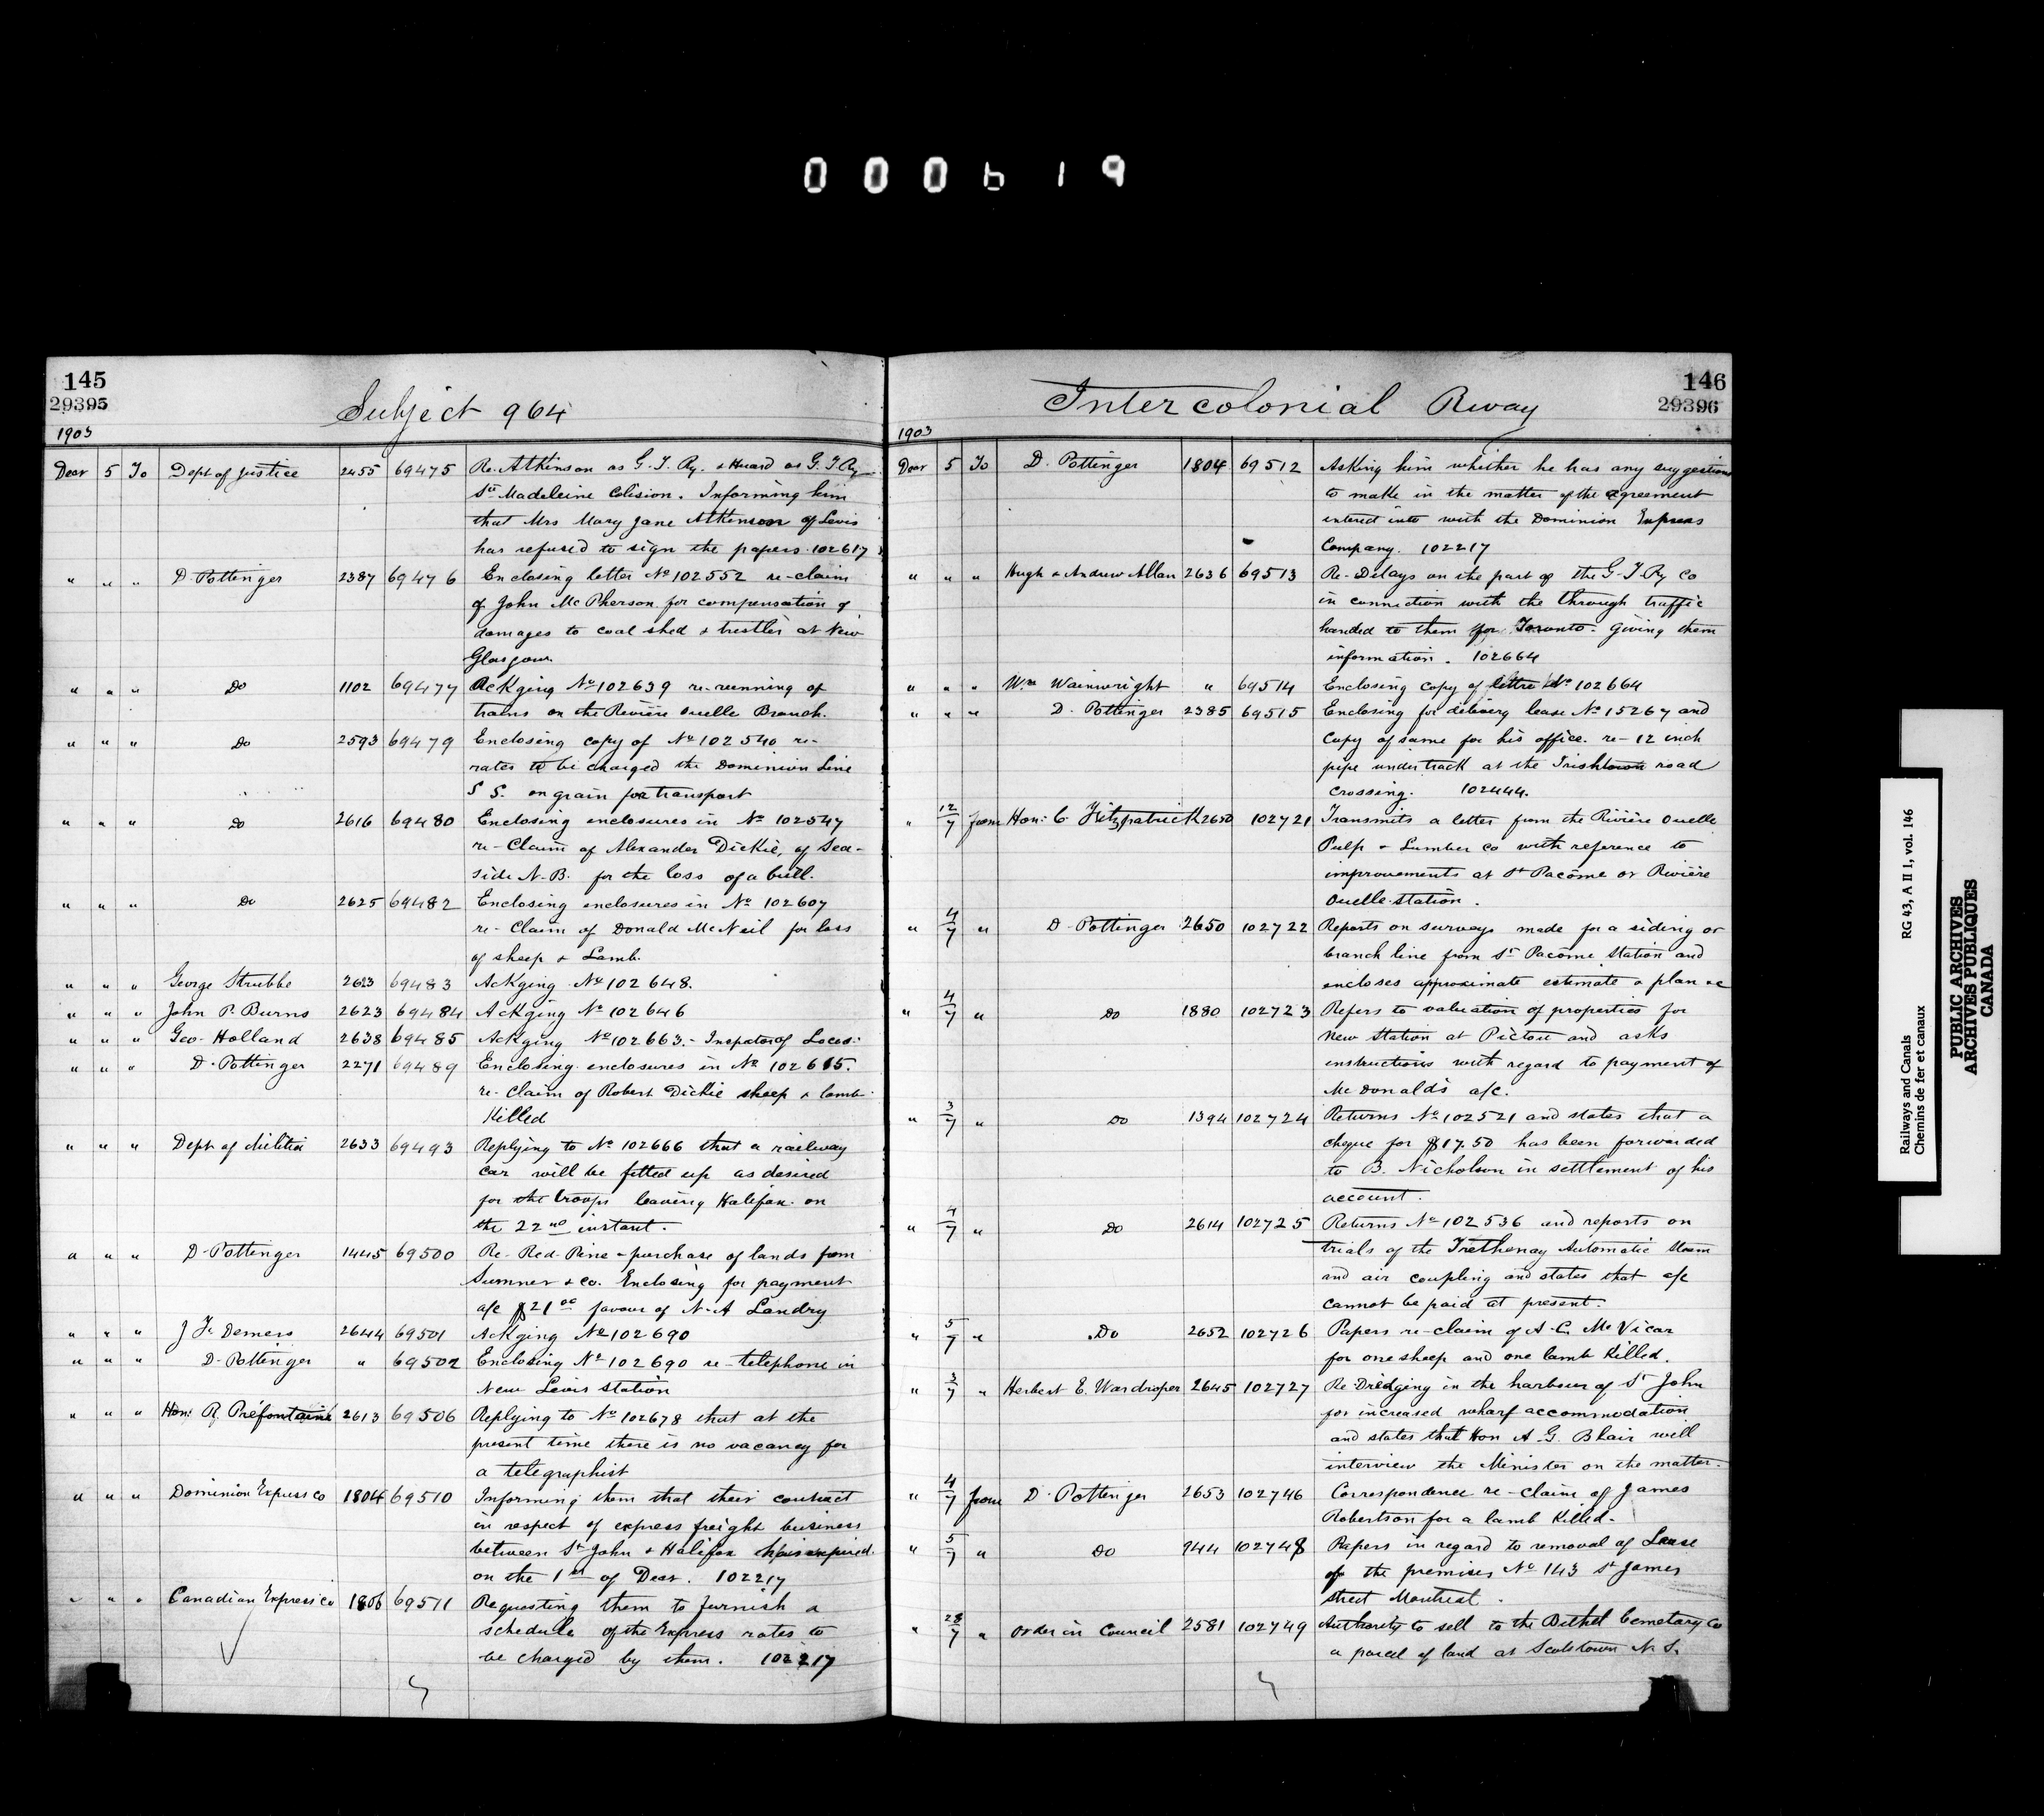 000619
145
29395
Subject 964
1903
Decr 5 To Dept of Justice 2455 69475 Re. Atkinson vs G. T. Ry. & Huard vs G. T. Ry
Ste Madeleine Colision. Informing him
that Mrs Mary Jane Atkinson of Levis
has refused to sign the papers. 102617
" " " D. Pottinger 2387 69476 Enclosing letter No 102552 re-claim
of John McPherson for compensation of
damages to coal shed & trestles at New
Glasgow
" " " Do 1102 69477 Ackging No 102639 re-running of
trains on the Rivière Ouelle Branch.
" " " Do 2593 69479 Enclosing copy of No 102540 re-
rates to be charged the Dominion Line
S S. on grain for transport
" " " Do 2616 69480 Enclosing enclosures in No 102547
re- Claim of Alexander Dickie, of Sea-
side N.B. for the loss of a bull.
" " " Do 2625 69482 Enclosing enclosures in No 102607
re- Claim of Donald McNeil for loss
of sheep & Lamb.
" " " George Strubbe 2623 69483 Ackging No 102648.
" " " John P. Burns 2623 69484 Ackging No 102646
" " " Geo. Holland 2638 69485 Ackging No 102663. - Inspator of Locos:
" " " D. Pottinger 2271 69489 Enclosing enclosures in No 102615.
re- Claim of Robert Dickie sheep & lamb
Killed
" " " Dept of Militia 2633 69493 Replying to No 102666 that a railway
car will be fitted up as desired
for the troops leaving Halifax on
the 22nd instant.
" " " D. Pottinger 1445 69500 Re- Red-Pine - purchase of lands from
Sumner & Co. Enclosing for payment
a/c $21 00 favour of N. A Landry
" " " J. F. Demers 2644 69501 Ackging No 102690
" " " D. Pottinger " 69502 Enclosing No 102690 re-telephone in
New Levis station
" " " Hon: R. Préfontaine 2613 69506 Replying to No 102678 that at the
present time there is no vacancy for
a telegraphist
" " " Dominion Express Co 1804 69510 Informing them that their contract
in respect of express freight business
between St John & Halifax has expired
on the 1st of Decr. 102217
" " " Canadian Express Co 1806 69511 Requesting them to furnish a
schedule of the Express rates to
be charged by them. 102217
146
29396
Intercolonial Rway
1903
Decr 5 To D. Pottinger 1804 69512 Asking him whether he has any suggestions
to make in the matter of the agreement
intered into with the Dominion Express
Company. 102217
" " " Hugh & Andrew Allan 2636 69513 Re- Delays on the part of the G. T. Ry Co
in connection with the through traffic
handed to them for Toronto. Giving them
information. 102664
" " " Wm Wainwright " 69514 Enclosing copy of lettre No 102664
" " " D. Pottinger 2385 69515 Enclosing for delivery lease No 15267 and
copy of same for his office. re- 12 inch
pipe under track at the Irishtown road
crossing. 102444.
" 12/7 from Hon: C. Fitzpatrick 2650 102721 Transmits a letter from the Rivière Ouelle
Pulp & Lumber Co with reference to
improvements at St Pacôme or Rivière
Ouelle station.
" 4/7 " D. Pottinger 2650 102722 Reports on surveys made for a siding or
branch line from St Pacome Station and
encloses approximate estimate & plan &c
" 4/7 " Do 1880 102723 Refers to valuation of properties for
New Station at Pictou and asks
instructions with regard to payment of
McDonald's a/c.
" 3/7 " Do 1394 102724 Returns No 102521 and states that a
cheque for $17.50 has been forwarded
to B. Nicholson in settlement of his
account.
" 4/7 " Do 2614 102725 Returns No 102536 and reports on
trials of the Trethenay Automatic Steam
and air coupling and states that a/c
cannot be paid at present.
" 5/7 " Do 2652 102726 Papers re-claim of A. C. McVicar
for one sheep and one lamb Killed.
" 3/7 " Herbert E. Wardroper 2645 102727 Re Dredging in the harbour of St John
for increased wharf accommodation
and states that Hon A. G. Blair will
interview the Minister on the matter.
" 4/7 from D. Pottinger 2653 102746 Correspondence re-claim of James
Robertson for a lamb Killed.
" 5/7 " Do 944 102748 Papers in regard to removal of Lease
of the premises No 143 St James
Street Montreal.
" 28/7 " Order in Council 2581 102749 Authority to sell to the Bethel Cemetary Co
a parcel of land at Scotstown N. S.
Railways and Canals RG 43, A II 1, vol. 146
Chemins de fer et canaux
PUBLIC ARCHIVES
ARCHIVES PUBLIQUES
CANADA